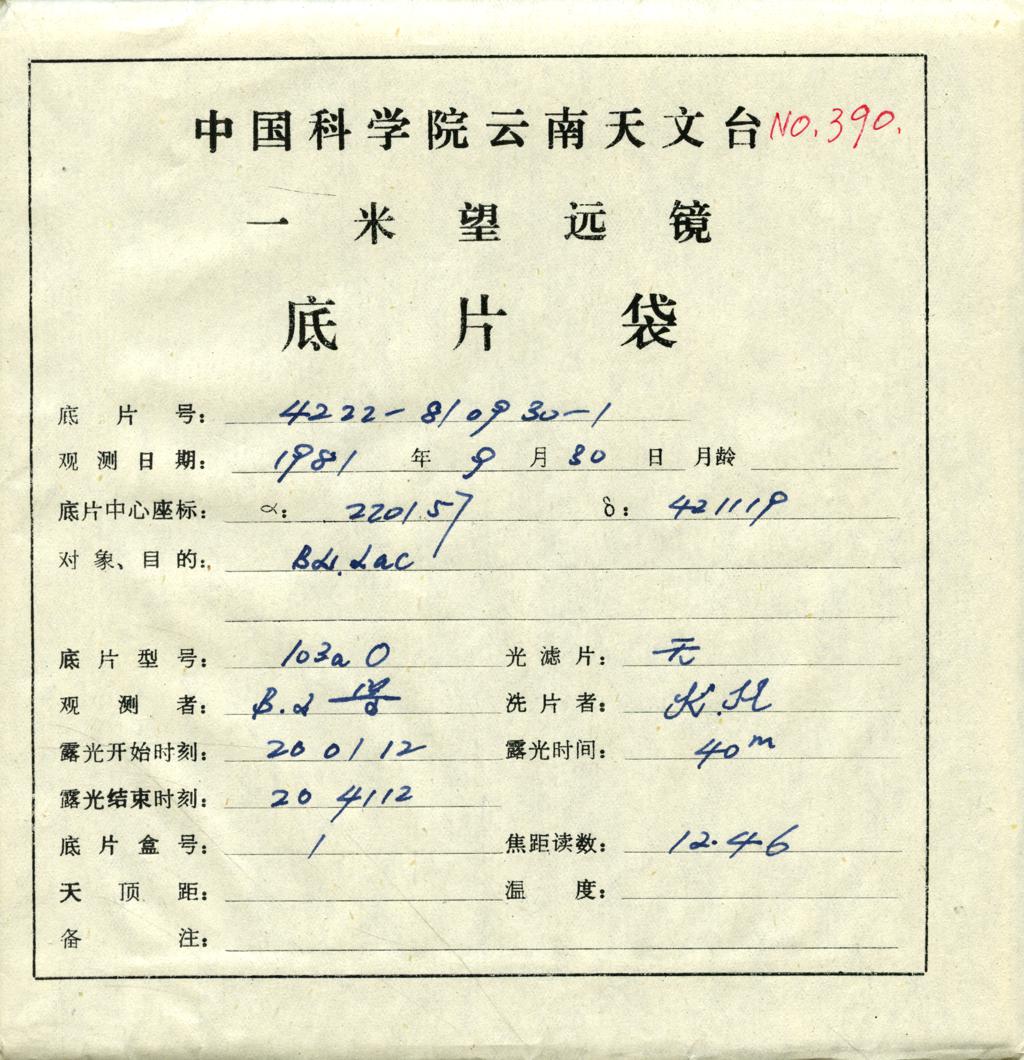 中国科学院云南天文台 NO.390.
一米望远镜
底片袋
底片号： 4222-810930-1
观测日期： 1981 年 9 月 30 日 月龄
底片中心座标： α： 220157 δ： 421119
对象、目的： BL.Lac
底片型号： 103a O 光滤片： 无
观测者： 洗片者：
露光开始时刻： 20 01 12 露光时间： 40m
露光结束时刻： 20 41 12
底片盒号： 1 焦距读数： 12.46
天顶距： 温度：
备注：